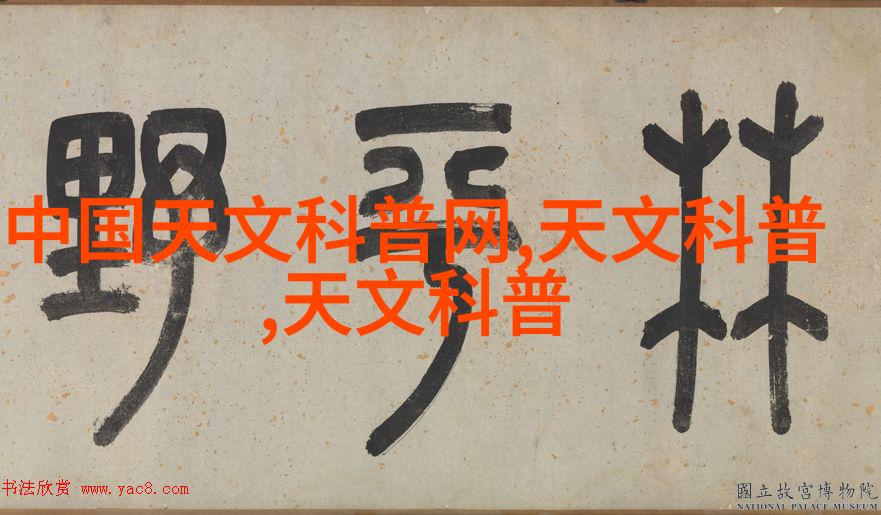 林平野
中国天文科普网,天文科普
,天文科普
书法欣赏 www.yac8.com
國立故宮博物院
NATIONAL PALACE MUSEUM